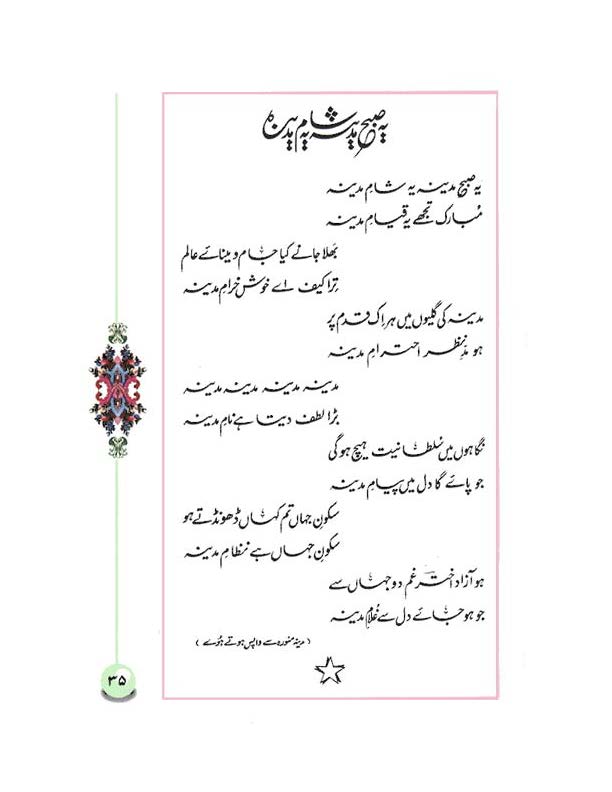 یہ صبحِ مدینہ یہ شامِ مدینہ
یہ صبحِ مدینہ یہ شامِ مدینہ
مُبارک تجھے یہ قیامِ مدینہ
بَھلا جانے کیا جام و مینائے عالم
تِرا کیف اے خوش خرامِ مدینہ
مدینہ کی گلیوں میں ہر اِک قدم پر
ہو مدِّنظر احترامِ مدینہ
مدینہ مدینہ مدینہ مدینہ
بڑا لطف دیتا ہے نامِ مدینہ
نگاہوں میں سُلطانیت ہیچ ہوگی
جو پائے گا دل میں پیامِ مدینہ
سکونِ جہاں تم کہاں ڈھونڈتے ہو
سکونِ جہاں ہے نظامِ مدینہ
ہو آزاد اختر غمِ دو جہاں سے
جو ہو جائے دل سے غُلامِ مدینہ
( مدینہ منورہ سے واپس ہوتے ہُوئے )
۳۵